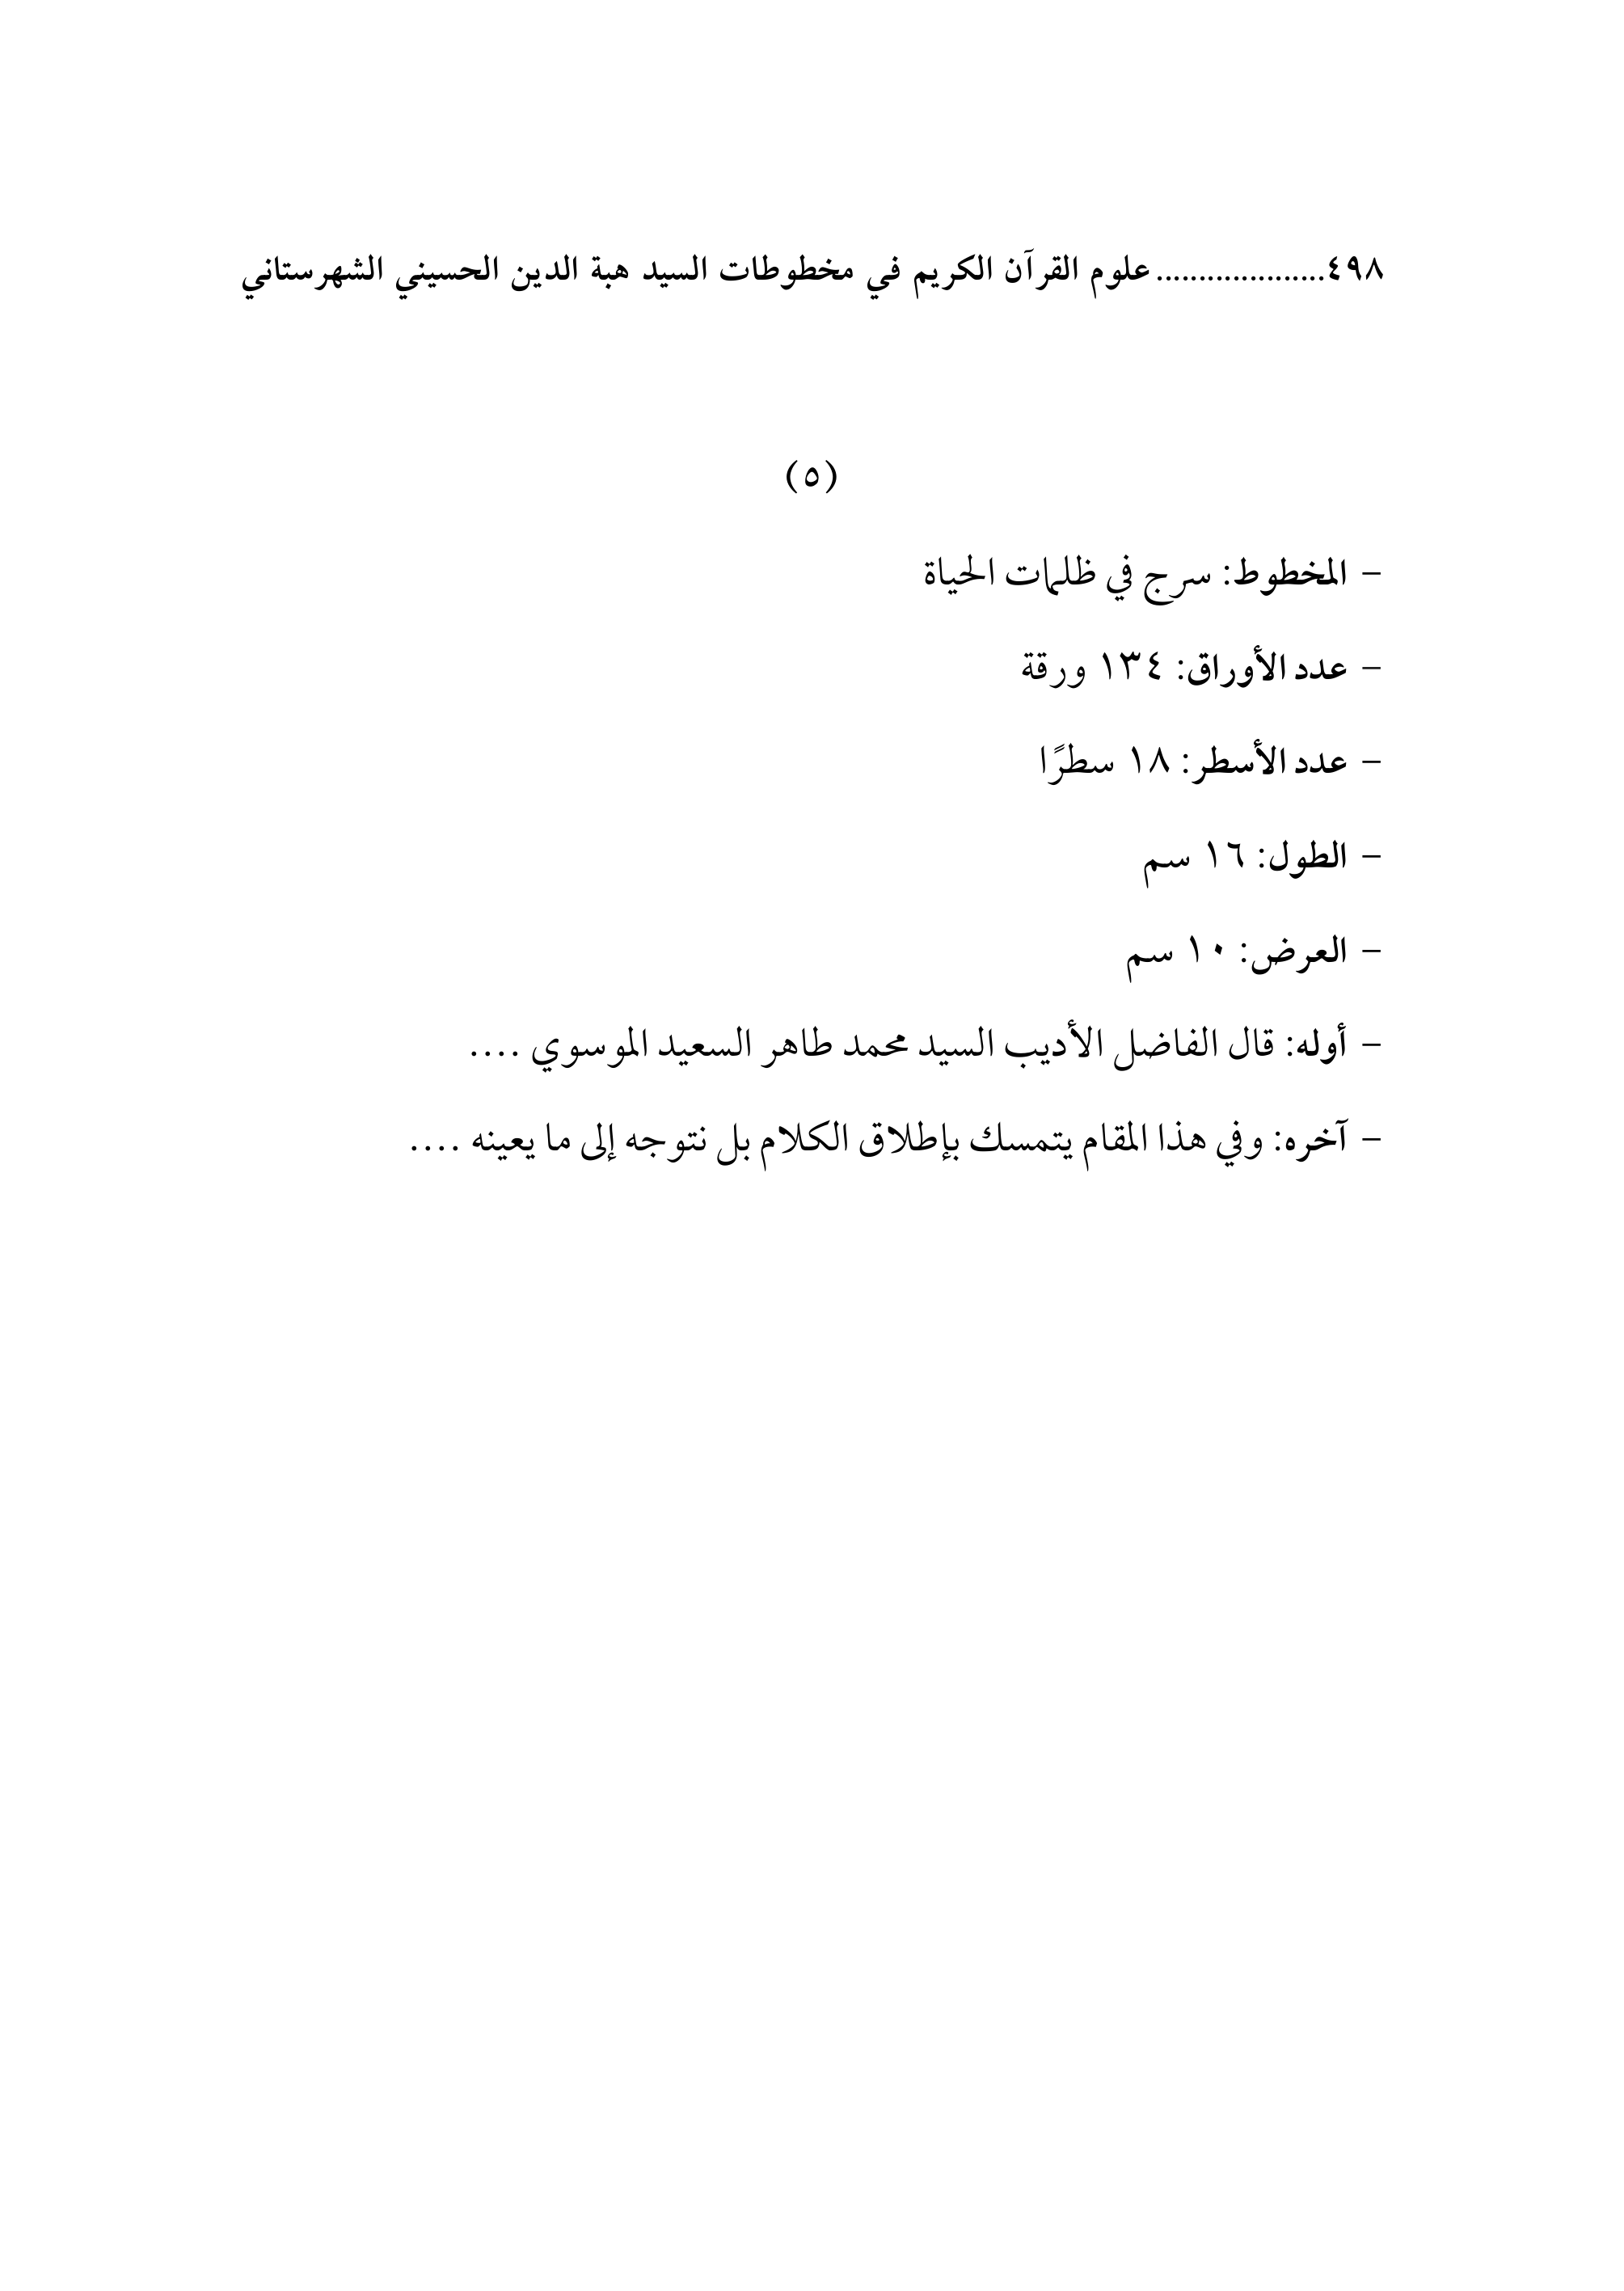 ٤٩٨....................علوم القرآن الكريم في مخطوطات السيد هبة الدين الحسيني الشهرستاني
(٥)
– المخطوط: سرج في ظلمات الحياة
– عدد الأوراق: ١٣٤ ورقة
– عدد الأسطر: ١٨ سطرًا
– الطول: ١٦ سم
– العرض: ١٠ سم
– أوله: قال الفاضل الأديب السيد محمد طاهر السعيد الموسوي ....
– آخره: وفي هذا المقام يتمسك بإطلاق الكلام بل نتوجه إلى ما يعينه ....